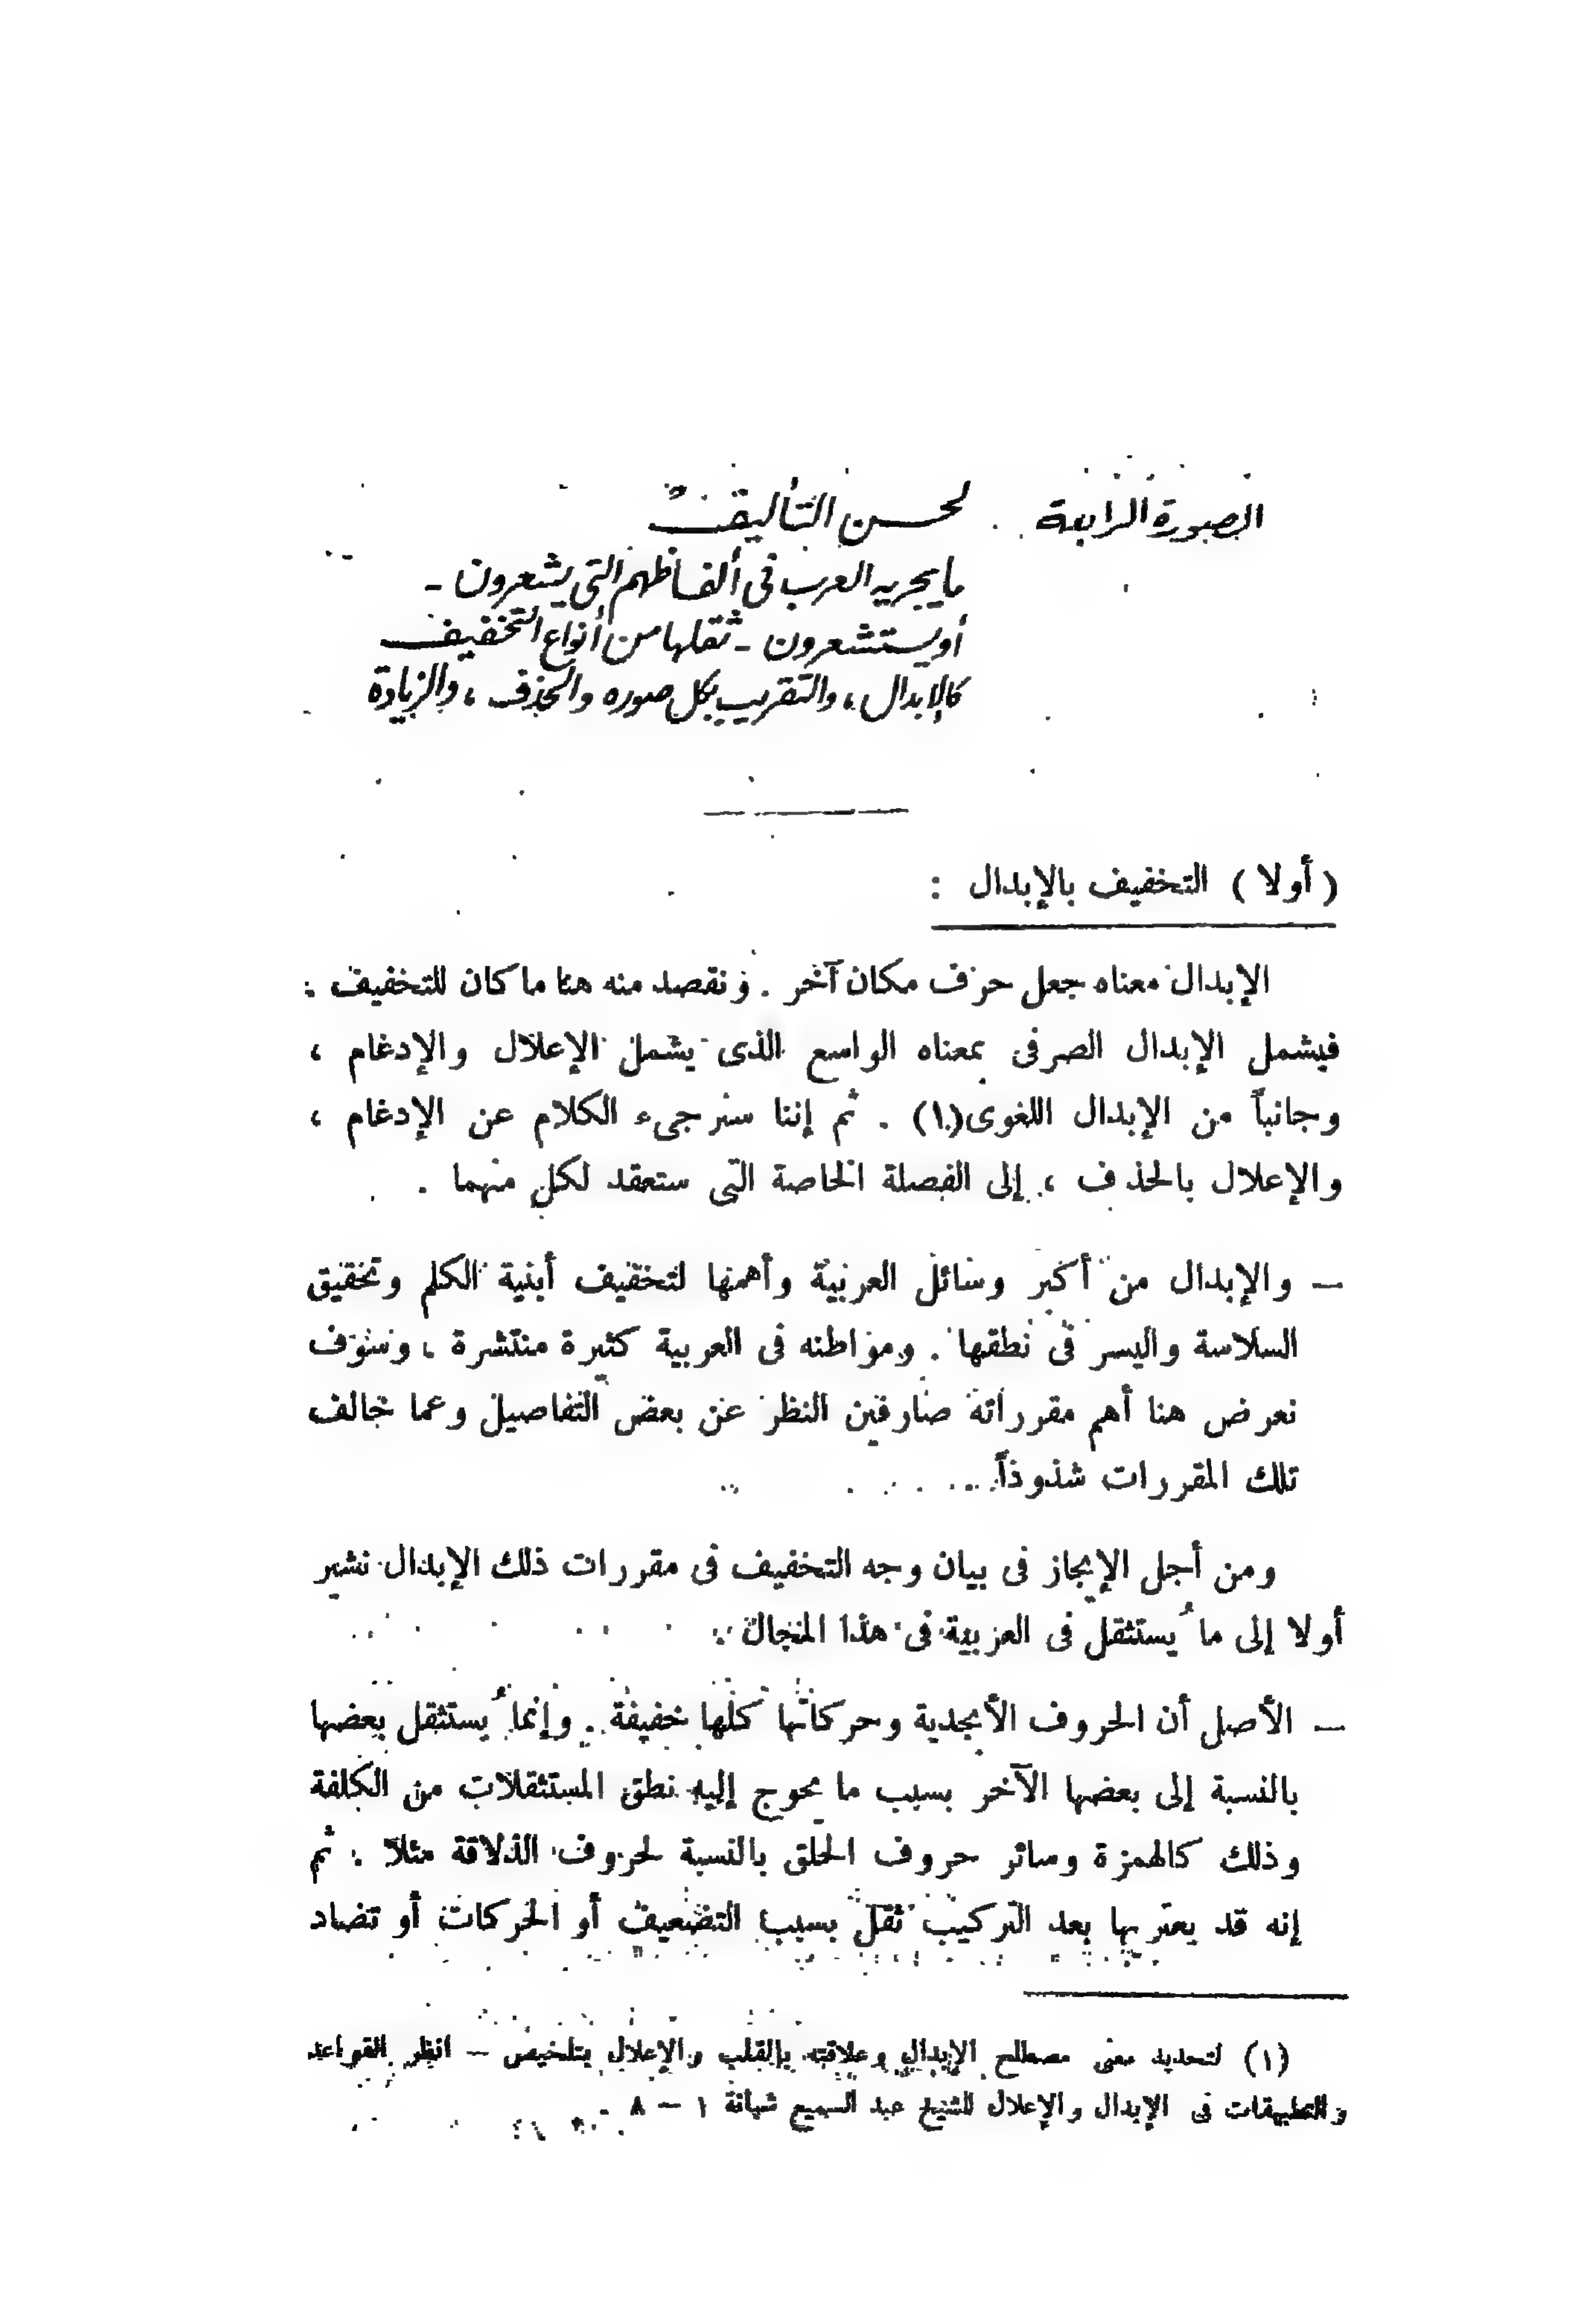 الصورة الرابعة لحسن التأليف
ما يجريه العرب في ألفاظهم التي يشعرون -
أو يستشعرون - ثقلها من أنواع التخفيف
كالإبدال ، والتقريب بكل صوره والحذف ، والزيادة
( أولا ) التخفيف بالإبدال :
الإبدال معناه جعل حرف مكان آخر . ونقصد منه هنا ما كان للتخفيف .
فيشمل الإبدال الصرفى بمعناه الواسع الذى يشمل الإعلال والإدغام ،
وجانباً من الإبدال اللغوى(١) . ثم إننا سنرجىء الكلام عن الإدغام ،
والإعلال بالحذف ، إلى الفصلة الخاصة التى ستعقد لكل منهما .
— والإبدال من أكبر وسائل العربية وأهمها لتخفيف أبنية الكلم وتحقيق
السلاسة واليسر فى نطقها . ومواطنه فى العربية كثيرة منتشرة ، وسوف
نعرض هنا أهم مقرراته صارفين النظر عن بعض التفاصيل وعما خالف
تلك المقررات شذوذاً
ومن أجل الإيجاز فى بيان وجه التخفيف فى مقررات ذلك الإبدال نشير
أولا إلى ما ُيستثقل فى العربية فى هذا المجال .
— الأصل أن الحروف الأبجدية وحركاتها كلها خفيفة . وإنما ُيستثقل بعضها
بالنسبة إلى بعضها الآخر بسبب ما يحوج إليه نطق المستثقلات من الكلفة
وذلك كالهمزة وسائر حروف الحلق بالنسبة لحروف الذلاقة مثلا . ثم
إنه قد يعتريها بعد التركيب ثقل بسبب التضعيف أو الحركات أو تضاد
(١) لتحديد معنى مصطلح الإبدال وعلاقته بالقلب والإعلال بتلخيص — انظر القواعد
والتطبيقات فى الإبدال والإعلال للشيخ عبد السميع شبانة ١ — ٨